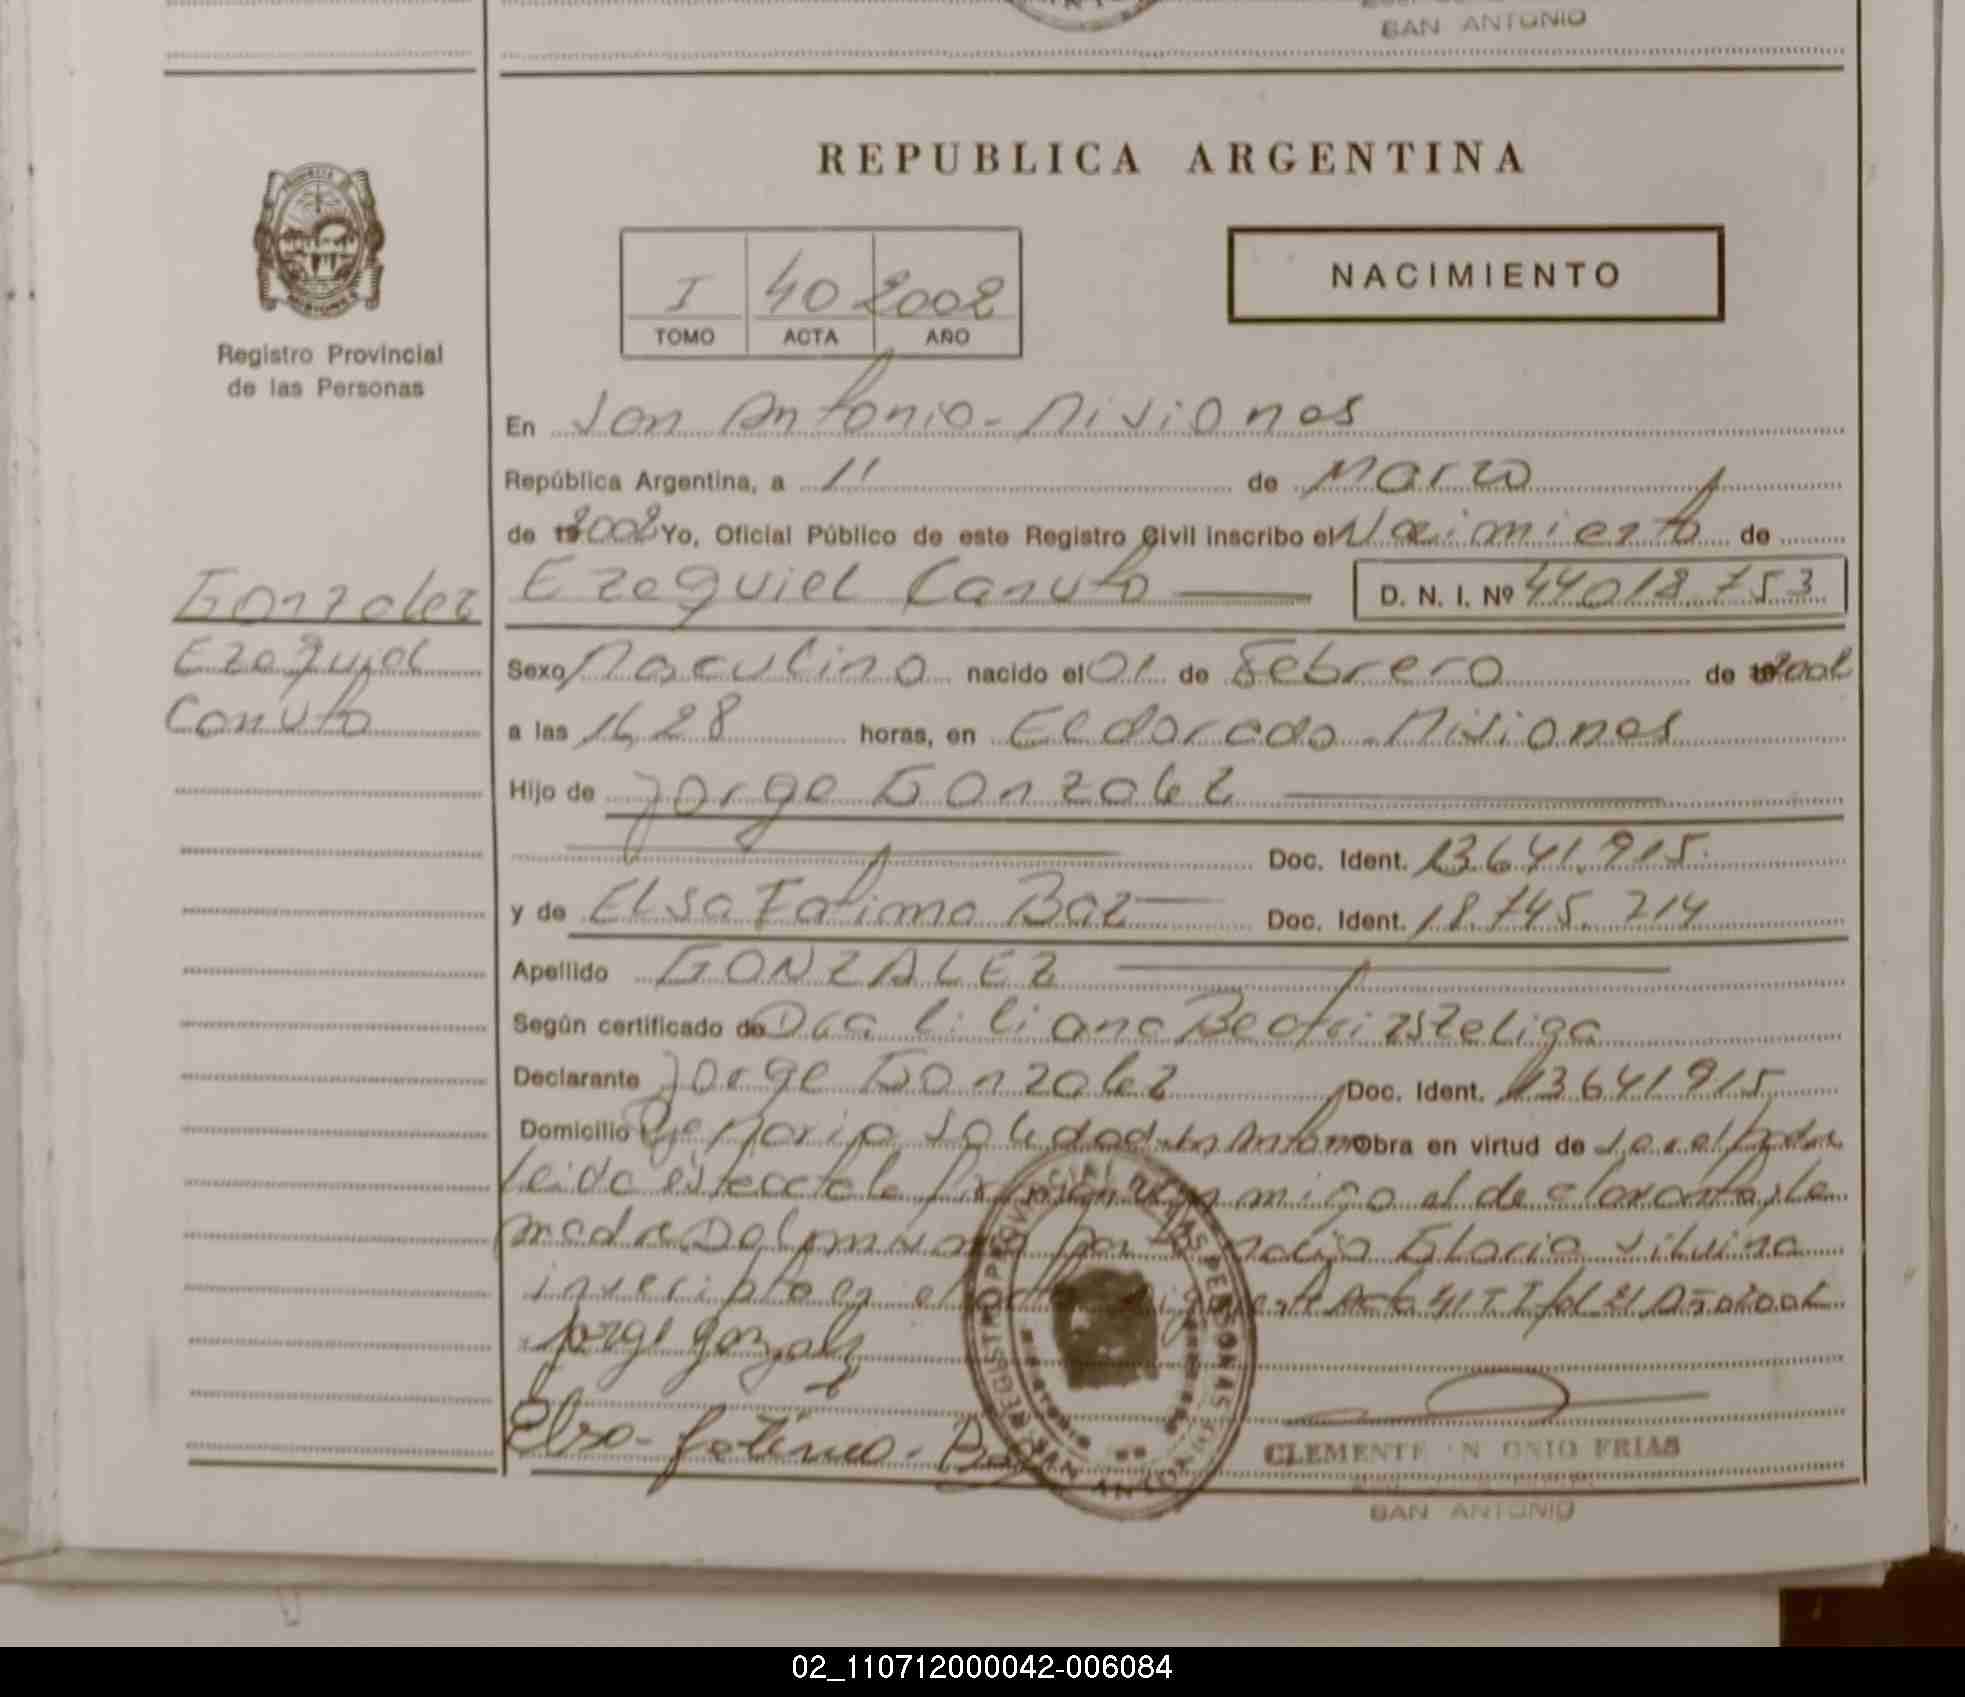 SAN ANTONIO
REPUBLICA ARGENTINA
I 40 2002
TOMO ACTA AÑO
NACIMIENTO
Registro Provincial
de las Personas
En San Antonio - Misiones
República Argentina, a 11 de Marzo
de 2002 Yo, Oficial Público de este Registro Civil inscribo el Nacimiento de
Gonzalez
Ezequiel
Canuto
Ezequiel Canuto D. N. I. Nº 44018.753
Sexo Masculino nacido el 01 de Febrero de 2002
a las 16,28 horas, en Eldorado - Misiones
Hijo de Jorge Gonzalez
Doc. Ident. 13641.915.
y de Elsa Fatima Baz Doc. Ident. 18.745.214
Apellido GONZALEZ
Según certificado de Dra Liliana Beatriz
Declarante Jorge Gonzalez Doc. Ident. 13641915
Domicilio Pje Maria Soledad San Antonio Obra en virtud de
Leida el acta la conmigo el declarante, la
madre Del Gloria
inscripto en el Acta 41 T I
Jorge Gonzalez
Elsa - Fatima - Baz
REGISTRO PROVINCIAL DE LAS PERSONAS
SAN ANTONIO
CLEMENTE N ONIO FRIAS
SAN ANTONIO
02_110712000042-006084